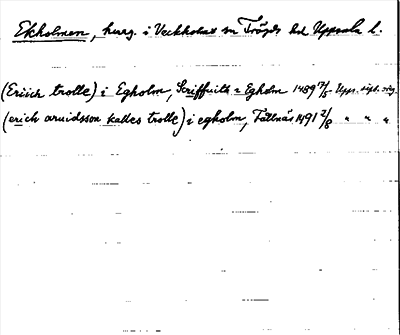 Ekholmen, herrg. i Veckholms sn Trögds hd Uppsala l.
(Eriich trolle) i Egholm, Scriffuith i Egholm 1489 7/5 Upps. stift. orig.
(erich aruidsson kalles trolle) i egholm, Tällnäs 1491 2/8 " " "